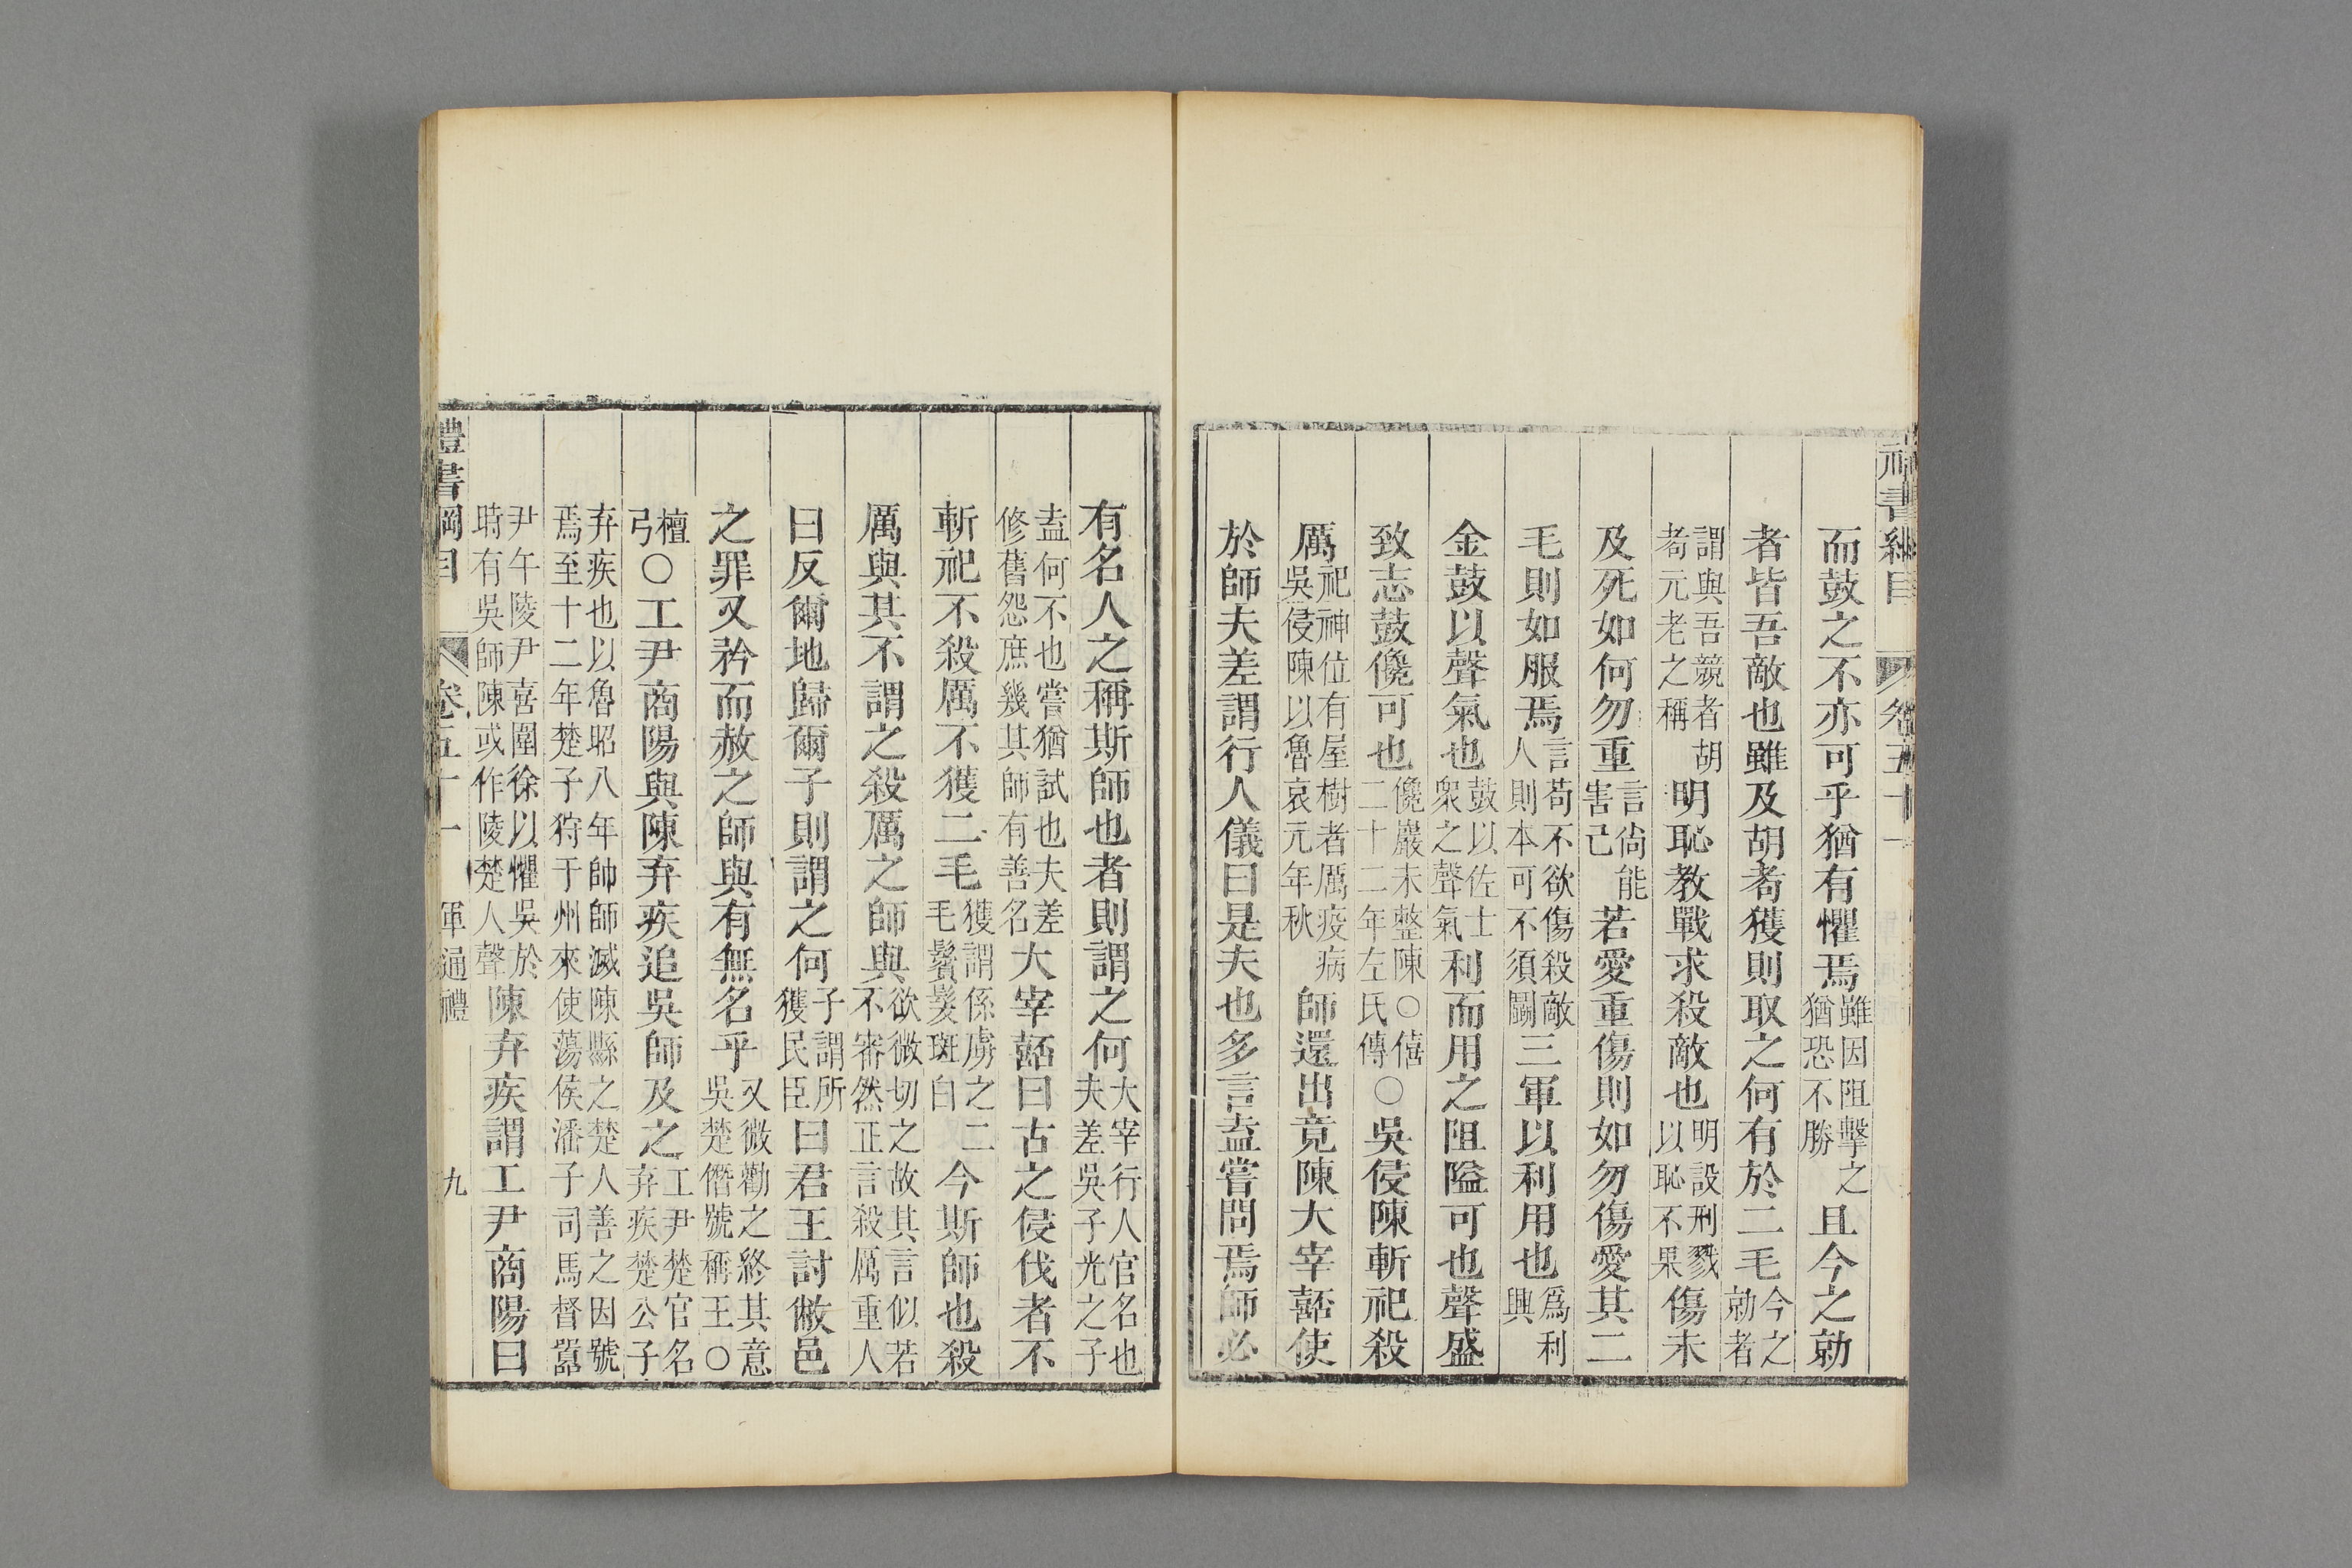 而鼓之不亦可乎猶有懼焉雖因阻擊之猶恐不勝且今之勍
者皆吾敵也雖及胡耇獲則取之何有於二毛今之勍者
謂與吾競者胡耇元老之稱明恥教戰求殺敵也明設刑戮以恥不果傷未
及死如何勿重言尙能害己若愛重傷則如勿傷愛其二
毛則如服焉言苟不欲傷殺敵人則本可不須鬭三軍以利用也爲利興
金鼓以聲氣也鼓以佐士衆之聲氣利而用之阻隘可也聲盛
致志鼓儳可也儳巖未整陳○僖二十二年左氏傳○吳侵陳斬祀殺
厲祀神位有屋樹者厲疫病吳侵陳以魯哀元年秋師還出竟陳大宰嚭使
於師夫差謂行人儀曰是夫也多言盍嘗問焉師必
有名人之稱斯師也者則謂之何大宰行人官名也夫差吳子光之子
盍何不也嘗猶試也夫差修舊怨庶幾其師有善名大宰嚭曰古之侵伐者不
斬祀不殺厲不獲二毛獲謂係虜之二毛鬢髮斑白今斯師也殺
厲與其不謂之殺厲之師與欲微切之故其言似若不審然正言殺厲重人
曰反爾地歸爾子則謂之何子謂所獲民臣曰君王討敝邑
之罪又矜而赦之師與有無名乎又微勸之終其意吳楚僭號稱王○
檀弓○工尹商陽與陳弃疾追吳師及之工尹楚官名弃疾楚公子
弃疾也以魯昭八年帥師滅陳縣之楚人善之因號焉至十二年楚子狩于州來使蕩侯潘子司馬督嚚
尹午陵尹喜圍徐以懼吳於時有吳師陳或作陵楚人聲陳弃疾謂工尹商陽曰
禮書綱目 卷五十一 軍通禮 九